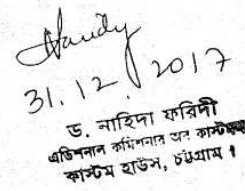 31.12.2017
ড. নাহিদা ফরিদী
এডিশনাল কমিশনার অব কাস্টমস
কাস্টম হাউস, চট্টগ্রাম।